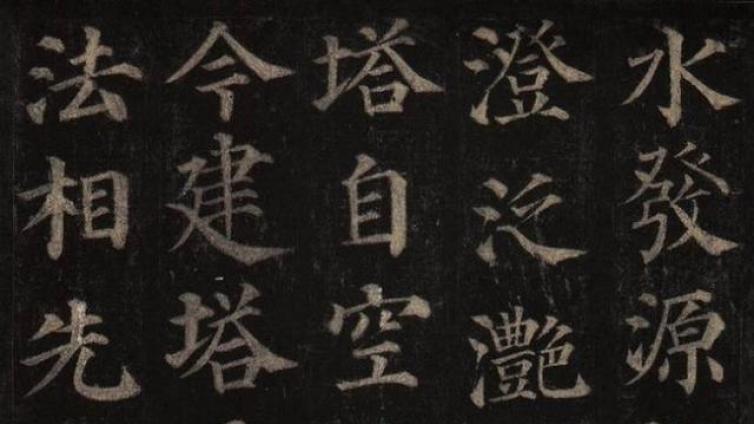 水發源
澄泛灩
塔自空
今建塔
法相先